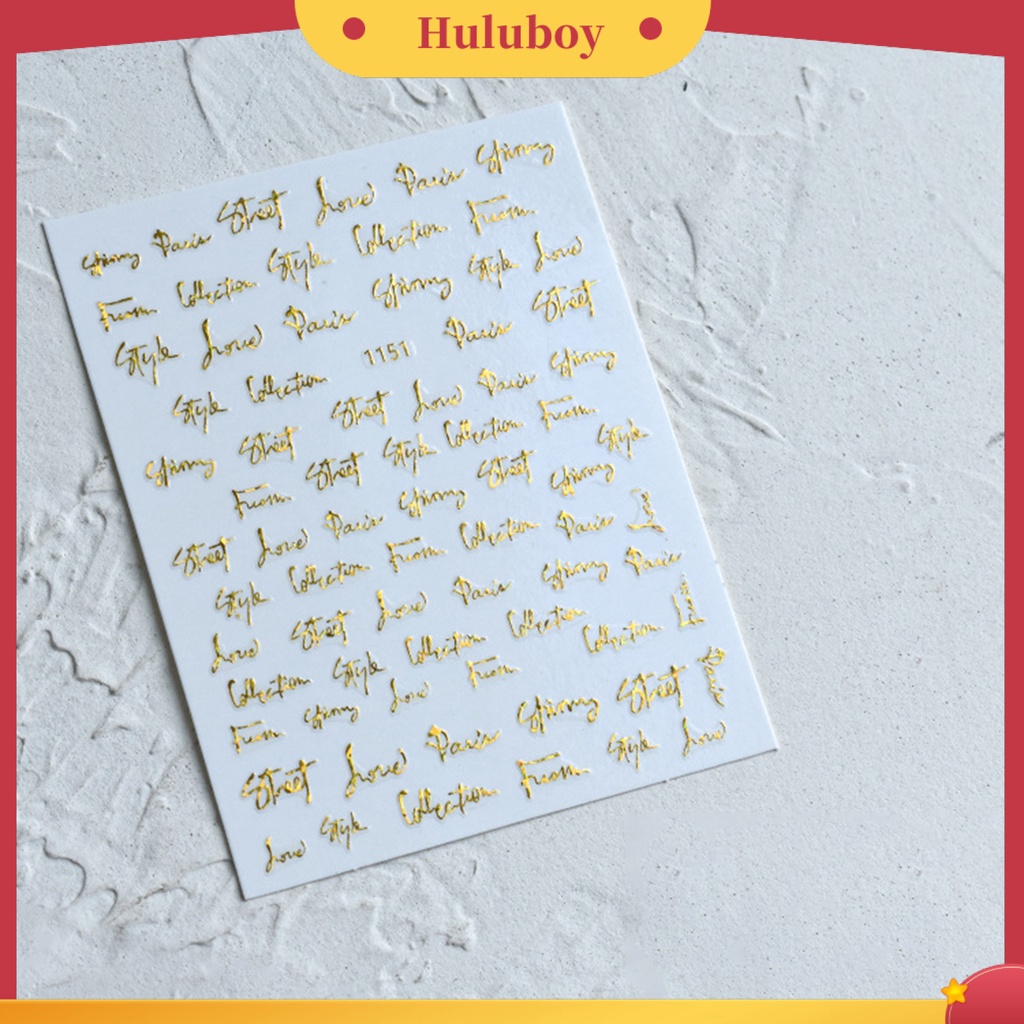 Huluboy
Spinny Paris Street Love Paris Spinny
From Collection Style Collection From
Style Love Paris Spinny Style Love
Style Collection 1151 Paris Street
Spinny Street Street Love Paris Spinny
From Street Style Collection From
Street Love Paris Spinny Street Spinny Style
Style Collection From Collection Paris Love
Love Street Love Paris Spinny Paris
Collection Style Collection Collection Collection Love
From Spinny Love From
Street Love Paris Spinny Street Paris
Love Style Collection From Style Love